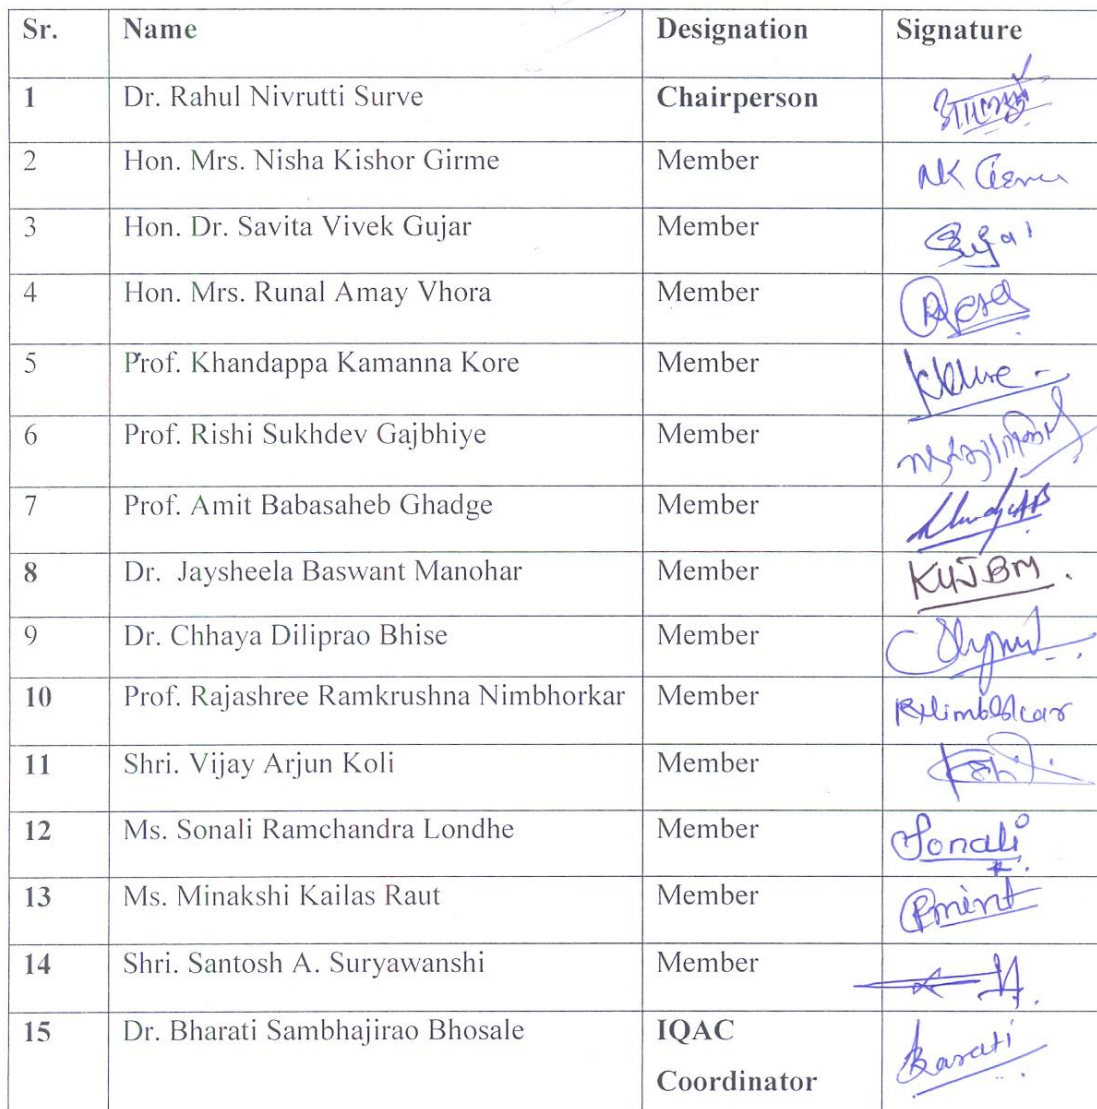 Sr. Name Designation Signature
1 Dr. Rahul Nivrutti Surve Chairperson
2 Hon. Mrs. Nisha Kishor Girme Member
3 Hon. Dr. Savita Vivek Gujar Member
4 Hon. Mrs. Runal Amay Vhora Member
5 Prof. Khandappa Kamanna Kore Member
6 Prof. Rishi Sukhdev Gajbhiye Member
7 Prof. Amit Babasaheb Ghadge Member
8 Dr. Jaysheela Baswant Manohar Member KUJBM.
9 Dr. Chhaya Diliprao Bhise Member
10 Prof. Rajashree Ramkrushna Nimbhorkar Member
11 Shri. Vijay Arjun Koli Member
12 Ms. Sonali Ramchandra Londhe Member Sonali
13 Ms. Minakshi Kailas Raut Member
14 Shri. Santosh A. Suryawanshi Member
15 Dr. Bharati Sambhajirao Bhosale IQAC
Coordinator